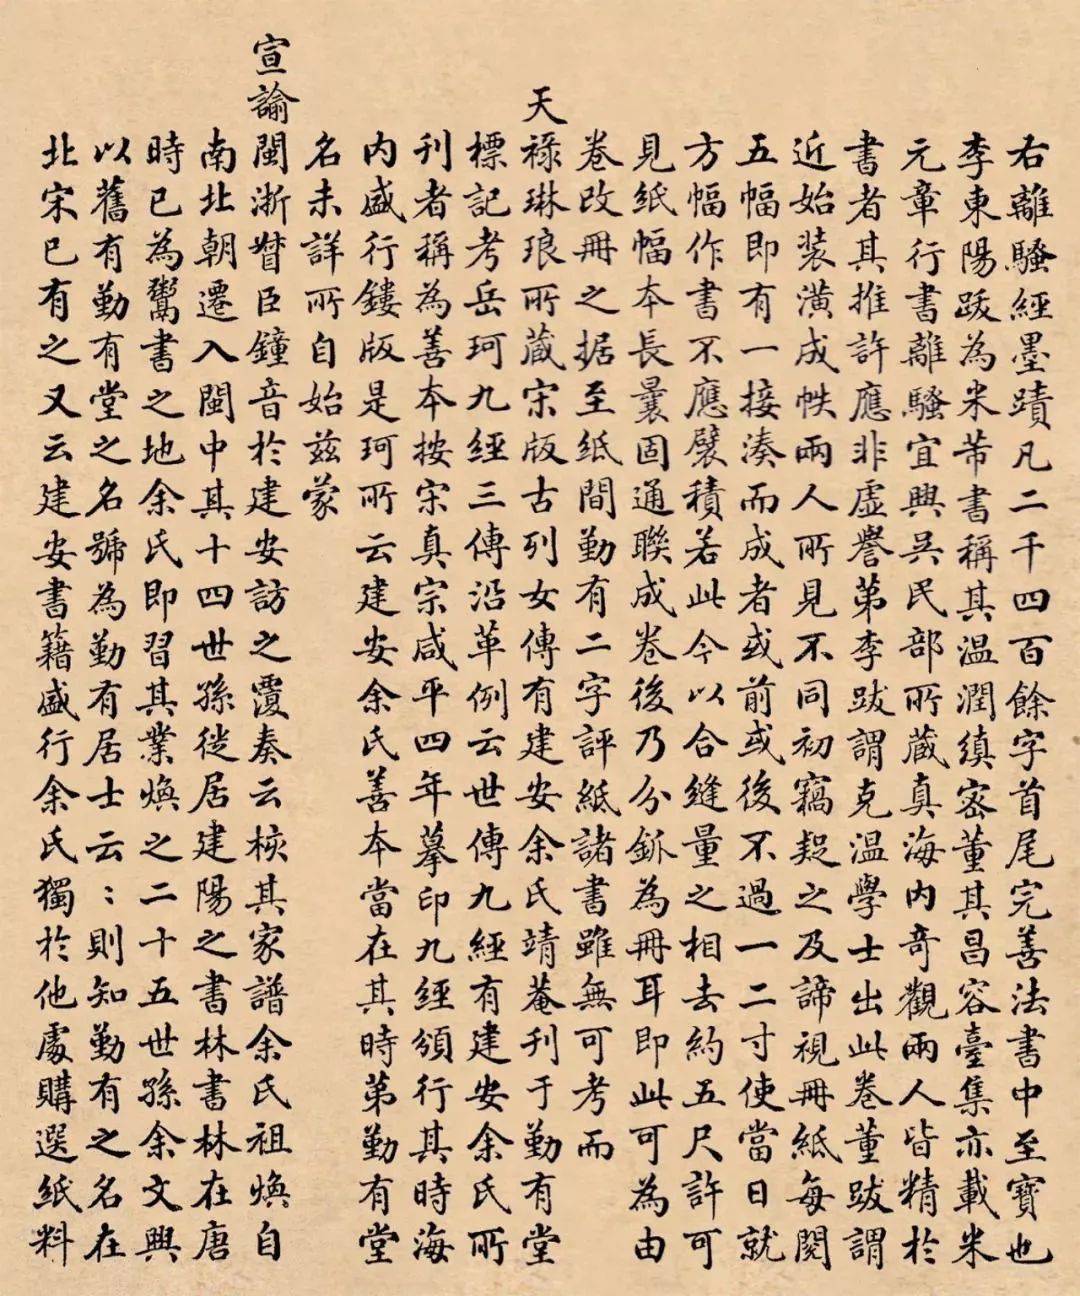 右離騷經墨蹟凡二千四百餘字首尾完善法書中至寶也
李東陽跋為米芾書稱其温潤縝密董其昌容臺集亦載米
元章行書離騷宜興吳民部所藏真海内奇觀兩人皆精於
書者其推許應非虛譽第李跋謂克温學士出此卷董跋謂
近始装潢成帙兩人所見不同初竊疑之及諦視冊紙每閲
五幅即有一接湊而成者或前或後不過一二寸使當日就
方幅作書不應襞積若此今以合縫量之相去約五尺許可
見紙幅本長曩固通聯成卷後乃分鈲為冊耳即此可為由
卷改冊之据至紙間勤有二字評紙諸書雖無可考而
天祿琳琅所藏宋版古列女傳有建安余氏靖菴刊于勤有堂
標記考岳珂九經三傳沿革例云世傳九經有建安余氏所
刊者稱為善本按宋真宗咸平四年摹印九經頒行其時海
内盛行鏤版是珂所云建安余氏善本當在其時第勤有堂
名未詳所自始兹蒙
宣諭閩浙督臣鐘音於建安訪之覆奏云核其家譜余氏祖煥自
南北朝遷入閩中其十四世孫徙居建陽之書林書林在唐
時已為鬻書之地余氏即習其業煥之二十五世孫余文興
以舊有勤有堂之名號為勤有居士云：則知勤有之名在
北宋已有之又云建安書籍盛行余氏獨於他處購選紙料